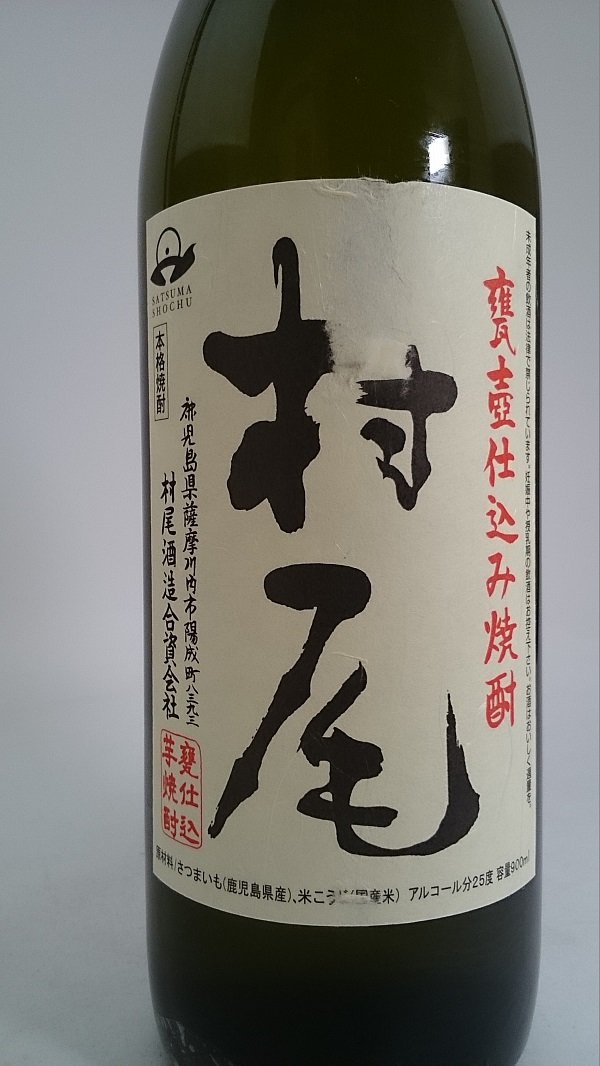 未成年者の飲酒は法律で禁じられています。妊娠中や授乳期の飲酒はお控え下さい。お酒はおいしく適量を。
甕壺仕込み焼酎
村尾
SATSUMA
SHOCHU
本格焼酎
鹿児島県薩摩川内市陽成町八三九三
村尾酒造合資会社
甕仕込
芋焼酎
原材料/さつまいも(鹿児島県産)、米こうじ(国産米) アルコール分25度 容量900ml